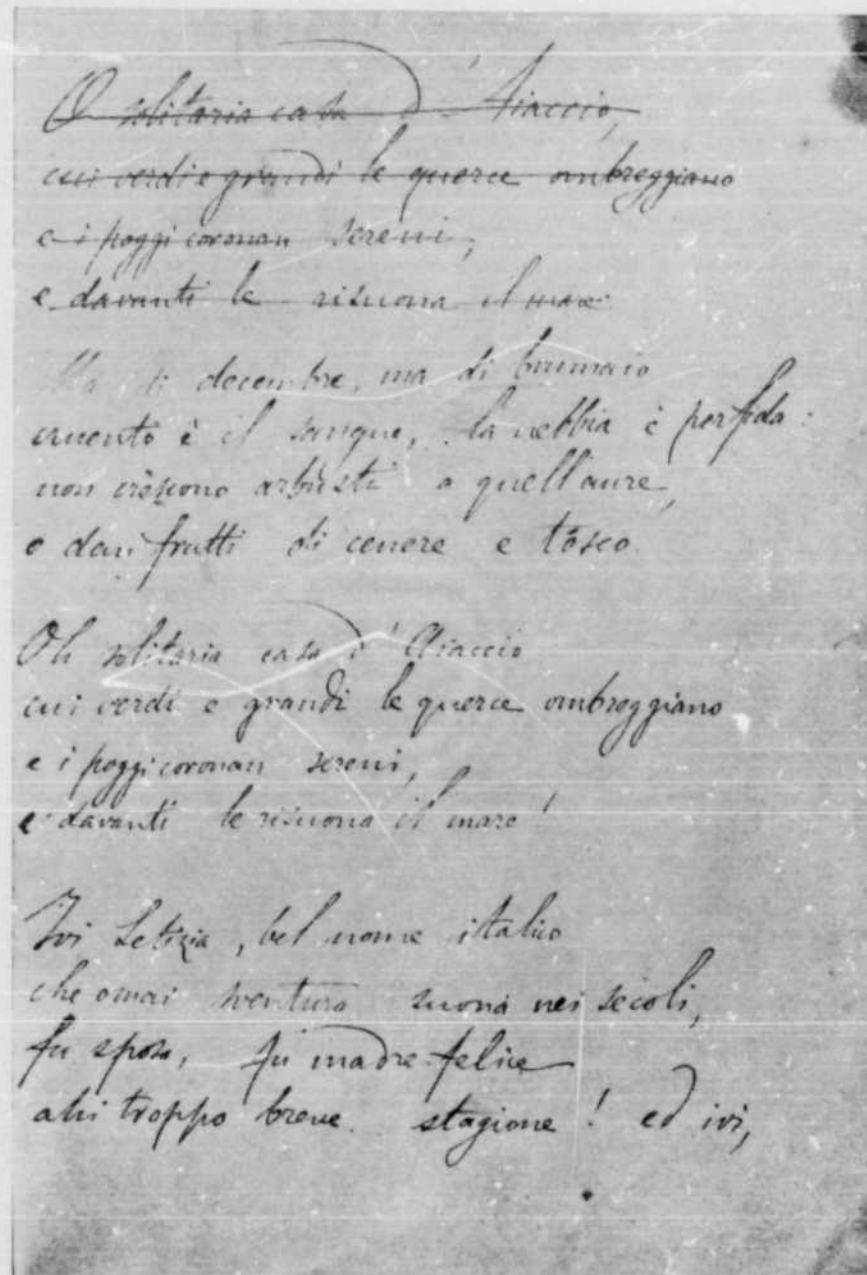 O solitaria casa d'Aiaccio,
cui verdi e grandi le querce ombreggiano
e i poggi coronan sereni,
e davanti le risuona il mare
Ma di decembre, ma di brumaio
cruento è il sangue, la nebbia è perfida:
non crescono arbusti a quell'aure,
o dan frutti di cenere e tòsco.
Oh solitaria casa d'Aiaccio
cui verdi e grandi le querce ombreggiano
e i poggi coronan sereni,
e davanti le risuona il mare!
Ivi Letizia, bel nome italico
che omai sventura suona nei secoli,
fu sposa, fu madre felice
ahi troppo breve stagione! ed ivi,